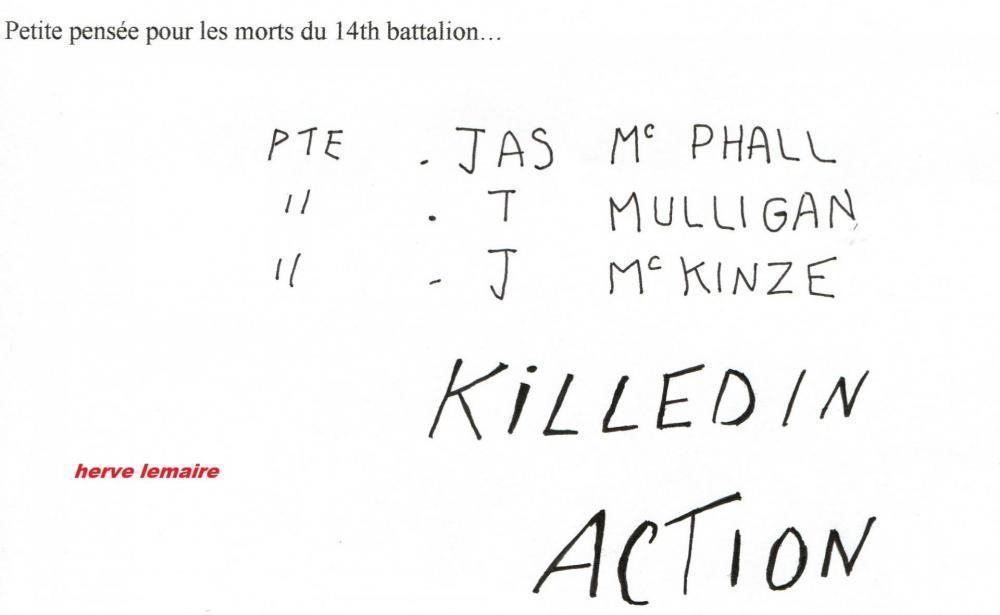 Petite pensée pour les morts du 14th battalion…
PTE . JAS Mc PHALL
" . T MULLIGAN
" - J Mc KINZE
KiLLED IN
herve lemaire
ACTION